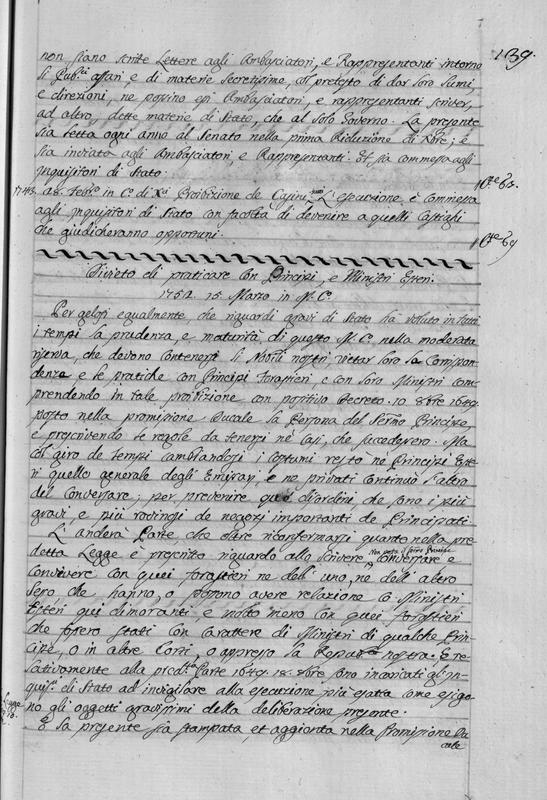 139.
non siano scritte Lettere agli Ambasciatori, e Rappresentanti intorno
li Pub.ci affari e di materie secretissime, col pretesto di dar loro lumi,
e direzioni, ne possino essi Ambasciatori, e rappresentanti scriver,
ad altro, dette materie di Stato, che al solo Governo. La presente
sia letta ogni anno al Senato nella prima Riduzione di Xbre; e
sia inviata agli Ambasciatori, e Rappresentanti. Et sia commessa agli
Inquisitori di Stato.
1743. 28. Feb.o in C.o di X.ci Proibizione de Casini L'esecuzione è commessa
agli Inquisitori di Stato con facoltà di devenire a quelli Castighi
che giudicheranno opportuni.
Divieto di praticare con Principi, e Ministri Esteri.
1752. 15. Marzo in M. C.
Per gelosi egualmente, che riguardi gravi di Stato hà voluto in tutti
i tempi la prudenza, e maturità di questo M. C. nella moderata
riserva, che devono contenersi li Nobili nostri, vietar loro la Corrispon-
denza, e le pratiche con Principi forastieri, e con loro Ministri com-
prendendo in tale proibizione con positivo Decreto. 10. 8bre 1649.
posto nella promissione Ducale la Persona del Sermo Principe,
e prescrivendo le regole da tenersi nè Casi, che succedessero. Ma
col giro de tempi cambiandosi i costumi restò nè Principi Este-
ri quello generale degli Emissarj, e ne privati continuò l'altro
del Conversare; per prevenire que' disordini, che sono i più
gravi, e più rovinosi de negozj importanti de Principati.
L'anderà Parte, che oltre riconfermarsi quanto nella pre-
detta Legge è prescritto riguardo allo scrivere Non possa il Sermo Principe conversare e
convivere con quei forastieri ne dell'uno, ne dell'altro
sesso che hanno, o possono avere relazione Cò Ministri
Esteri qui dimoranti, e molto meno con quei forastieri
che fossero stati con carattere di Ministri di qualche Prin-
cipe, o in altre Corti, o appresso la Repub.ca nostra: E re-
lativamente alla pred.ta Parte 1649. 18. Xbre sono incaricati gl'In-
quis.ri di Stato ad invigilare alla esecuzione più esatta come esigo-
no gli oggetti gravissimi della deliberazione presente.
E la presente sia stampata, et aggionta nella Promissione Du-
cale